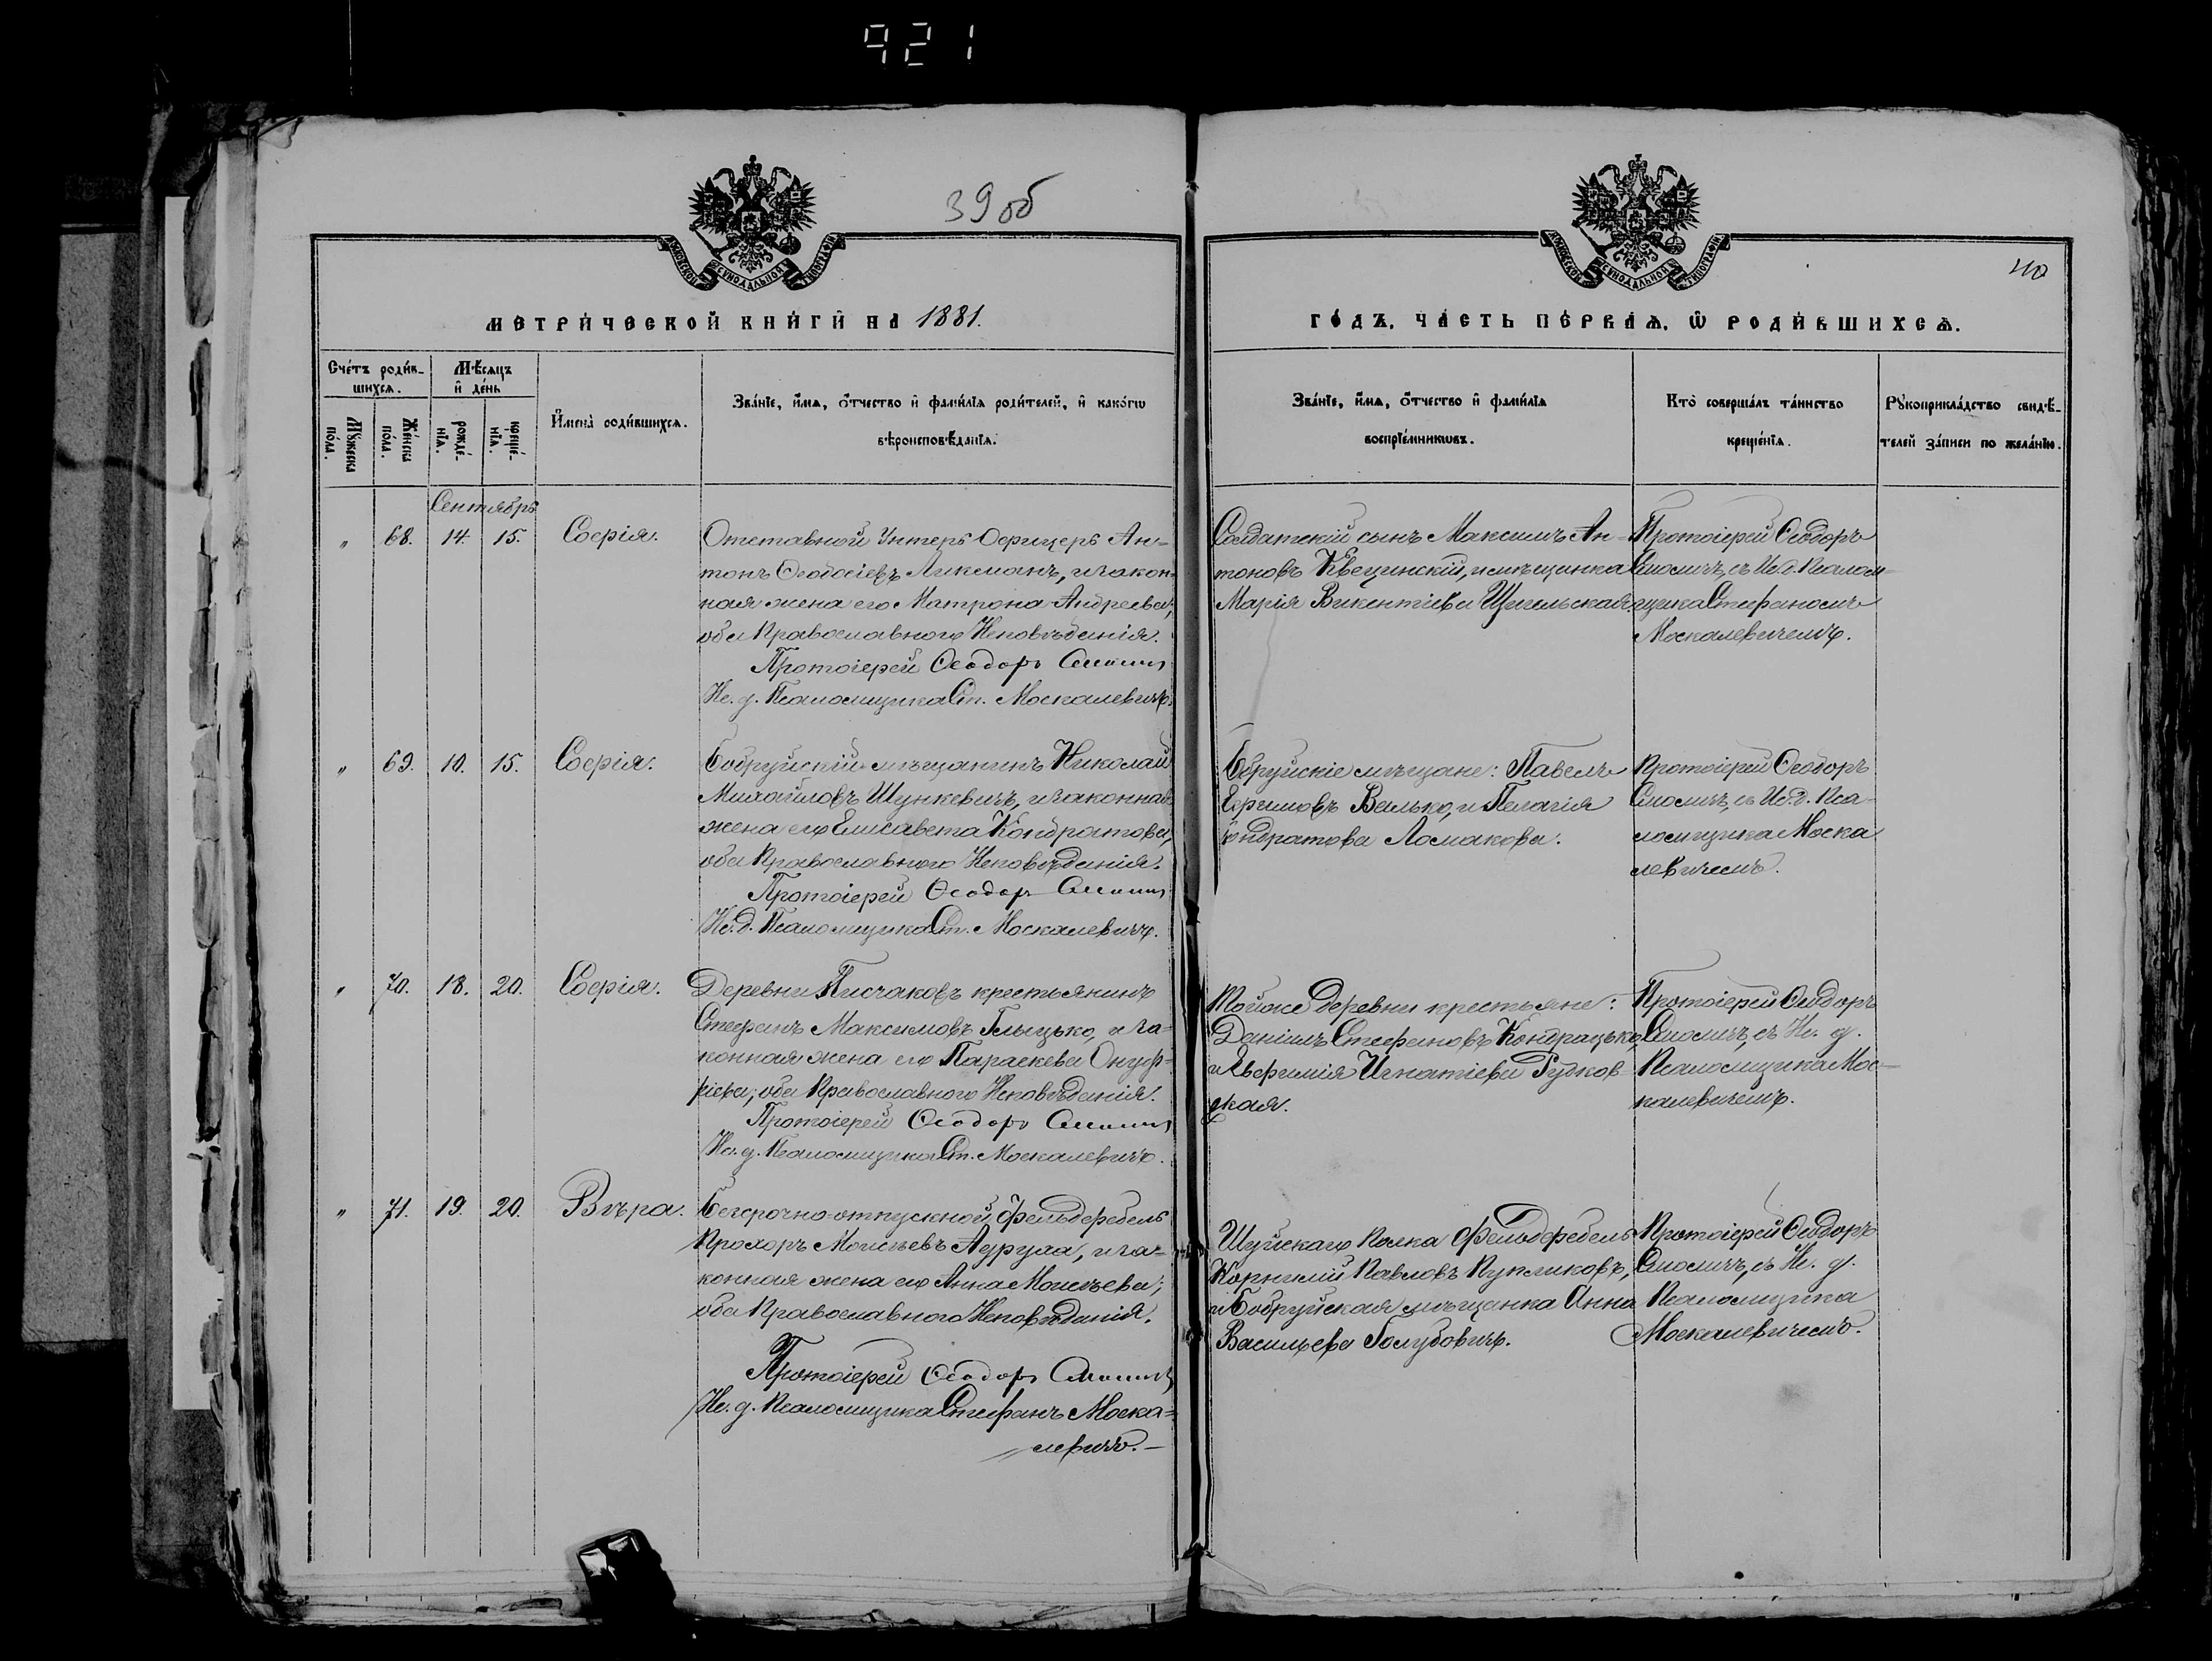 921
39 об
40
МОСКОВСКОЙ СѴНОДАЛЬНОЙ ТИПОГРАФІИ
МОСКОВСКОЙ СѴНОДАЛЬНОЙ ТИПОГРАФІИ
МЕТРИ́ЧЕСКОЙ КНИ́ГИ НА 1881.
ГО́ДЪ, ЧА́СТЬ ПЕ́РВАѦ, Ѡ РОДИ́ВШИХСѦ.
Сче́тъ роди́в-
шихсѧ.
Мꙋ́жеска
по́ла.
Же́нска
по́ла.
Мѣ́сѧцъ
и де́нь
рожде́-
нїѧ.
креще́-
нїѧ.
И́мена роди́вшихсѧ.
Зва́нїе, и́мѧ, о́тчество и фами́лїѧ роди́телей, и како́гѡ
вѣроисповѣ́данїѧ.
Зва́нїе, и́мѧ, о́тчество и фами́лїѧ
воспрїе́мникѡвъ.
Кто̀ соверша́лъ та́инство
креще́нїѧ.
Рꙋкоприкла́дство свидѣ́-
телей за́писи по жела́нїю.
Сентябрь
" 68. 14. 15. Софія.
Отставной Унтеръ-Офицеръ Ан-
тонъ Ѳеодосіевъ Ликсманъ, и закон-
ная жена его Матрона Андреева;
оба Православнаго Исповѣданія.
Протоіерей Ѳеодоръ Смоличъ
Ис. д. Псаломщика Ст. Москалевичъ.
Солдатскій сынъ Максимъ Ан-
тоновъ Квецинскій, и мѣщанка
Марія Викентіева Цигельская
Протоіерей Ѳеодоръ
Смоличъ, съ Ис. д. Псалом-
щика Стефаномъ
Москалевичемъ.
" 69. 10. 15. Софія.
Бобруйскій мѣщанинъ Николай
Михайловъ Шункевичъ, и законная
жена его Елисавета Кондратова,
оба Православнаго Исповѣданія.
Протоіерей Ѳеодоръ Смоличъ
Ис. д. Псаломщика Ст. Москалевичъ.
Бобруйскіе мѣщане: Павелъ
Ефимовъ Валько, и Пелагія
Кондратова Ломакова.
Протоіерей Ѳеодоръ
Смоличъ, съ Ис. д. Пса-
ломщика Моска
левичемъ.
" 70. 18. 20. Софія.
Деревни Писчаковъ крестьянинъ
Стефанъ Максимовъ Глыцько, и за-
конная жена его Параскева Онуф-
ріева; оба Православнаго Исповѣданія.
Протоіерей Ѳеодоръ Смоличъ
Ис. д. Псаломщика Ст. Москалевичъ.
Той же деревни крестьяне:
Даніилъ Стефановъ Кондрацько,
и Евфимія Игнатіева Рудков-
ская.
Протоіерей Ѳеодоръ
Смоличъ, съ Ис. д.
Псаломщика Мос-
калевичемъ.
" 71. 19. 20. Вѣра.
Безсрочно-отпускной Фельдфебель
Прохоръ Моисѣевъ, и за-
конная жена его Анна Моисѣева;
оба Православнаго Исповѣданія.
Протоіерей Ѳеодоръ Смоличъ
Ис. д. Псаломщика Стефанъ Моска-
левичъ.
Шуйскаго Полка Фельдфебель
Корнилій Павловъ Пупликовъ,
и Бобруйская мѣщанка Анна
Васильева Голубовичъ.
Протоіерей Ѳеодоръ
Смоличъ, съ Ис. д.
Псаломщика
Москалевичемъ.